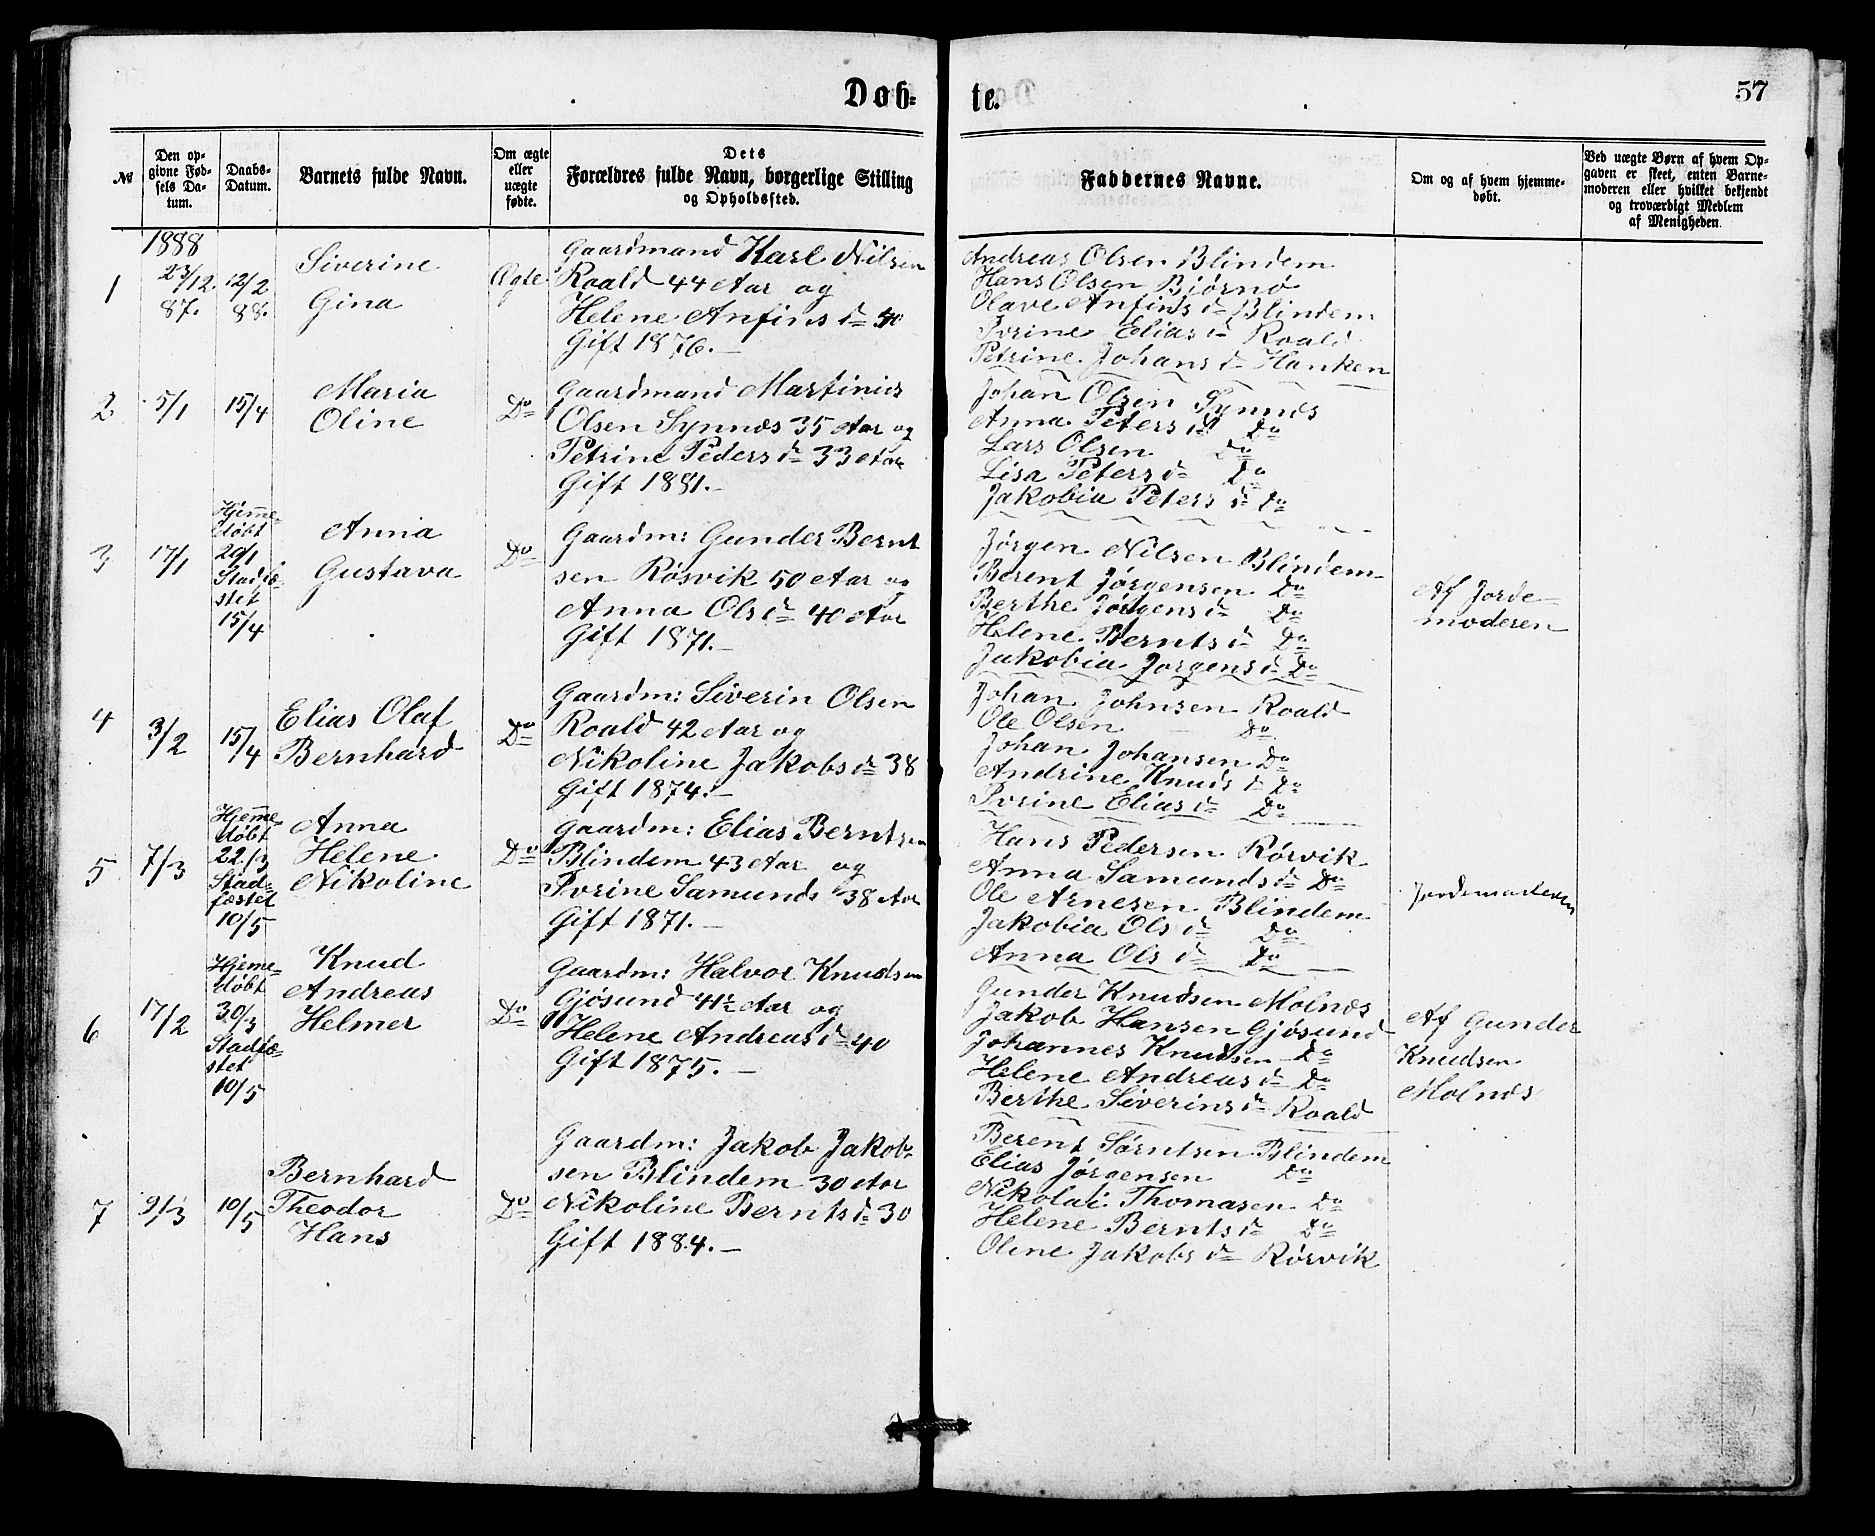 Døb-
te.
57
№
Den op-
givne Fød-
sels Da-
tum.
Daabs-
Datum.
Barnets fulde Navn.
Om ægte
eller
uægte
fødte.
Dets
Forældres fulde Navn, borgerlige Stilling
og Opholdssted.
Faddernes Navne.
Om og af hvem hjemme-
døbt.
Ved uægte Børn af hvem Op-
gaven er skeet, enten Barne-
moderen eller hvilket bekjendt
og troværdigt Medlem
af Menigheden.
1888
1
23/12
87.
12/2
88.
Siverine
Gina
Ægte
Gaardmand Karl Nilsen
Roald 44 Aar og
Helene Anfins dr 40
Gift 1876.
Andreas Olsen Blindem
Hans Olsen Bjørnø
Olave Anfins dr Blindem
Ivrine Elias dr Roald
Petrine Johans dr Hanken
2
5/1
15/4
Maria
Oline
Do
Gaardmand Martinius
Olsen Synnes 35 Aar og
Petrine Peders dr 33 Aar
Gift 1881.
Johan Olsen Synnes
Anna Peters dr Do
Lars Olsen Do
Lisa Peters dr Do
Jakobia Peters dr Do
3
17/1
Hjemme-
døbt
20/1
Stadfæ-
stet
15/4
Anna
Gustava
Do
Gaardm: Gunder Bernt
sen Røsvik 50 Aar og
Anna Ols dr 40 Aar
Gift 1871.
Jørgen Nilsen Blindem
Berent Jørgensen Do
Berthe Jørgens dr Do
Helene Bernts dr Do
Jakobia Jørgens dr Do
Af Jorde-
moderen
4
3/2
15/4
Elias Olaf
Bernhard
Do
Gaardm: Siverin Olsen
Roald 42 Aar og
Nikoline Jakobs dr 38
Gift 1874.
Johan Johnsen Roald
Ole Olsen Do
Johan Johansen Do
Andrine Knuds dr Do
Ivrine Elias dr Do
5
7/3
Hjemme-
døbt
22/3
Stad-
fæstet
10/5
Anna
Helene
Nikoline
Do
Gaardm: Elias Berntsen
Blindem 43 Aar og
Ivrine Samunds dr 38 Aar
Gift 1871.
Hans Pedersen Rørvik
Anna Samunds dr Do
Ole Arnesen Blindem
Jakobia Ols dr Do
Anna Ols dr Do
6
17/2
Hjeme-
døbt
30/3
Stadfæ-
stet
10/5
Knud
Andreas
Helmer
Do
Gaardm: Halvor Knudsen
Gjøsund Aar og
Helene Andreas dr 40
Gift 1875.
Gunder Knudsen Molnes
Jakob Hansen Gjøsund
Johannes Knudsen Do
Helene Andreas dr Do
Berthe Siverins dr Roald
Af Gunder
Knudsen
Molnes
7
9/3
10/5
Bernhard
Theodor
Hans
Do
Gaardm: Jakob Jakob-
sen Blindem 30 Aar
Nikoline Bernts dr 30
Gift 1884.
Berent Blindem
Elias Jørgensen Do
Nikolai Thomasen Do
Helene Bernts dr Do
Oline Jakobs dr Rørvik